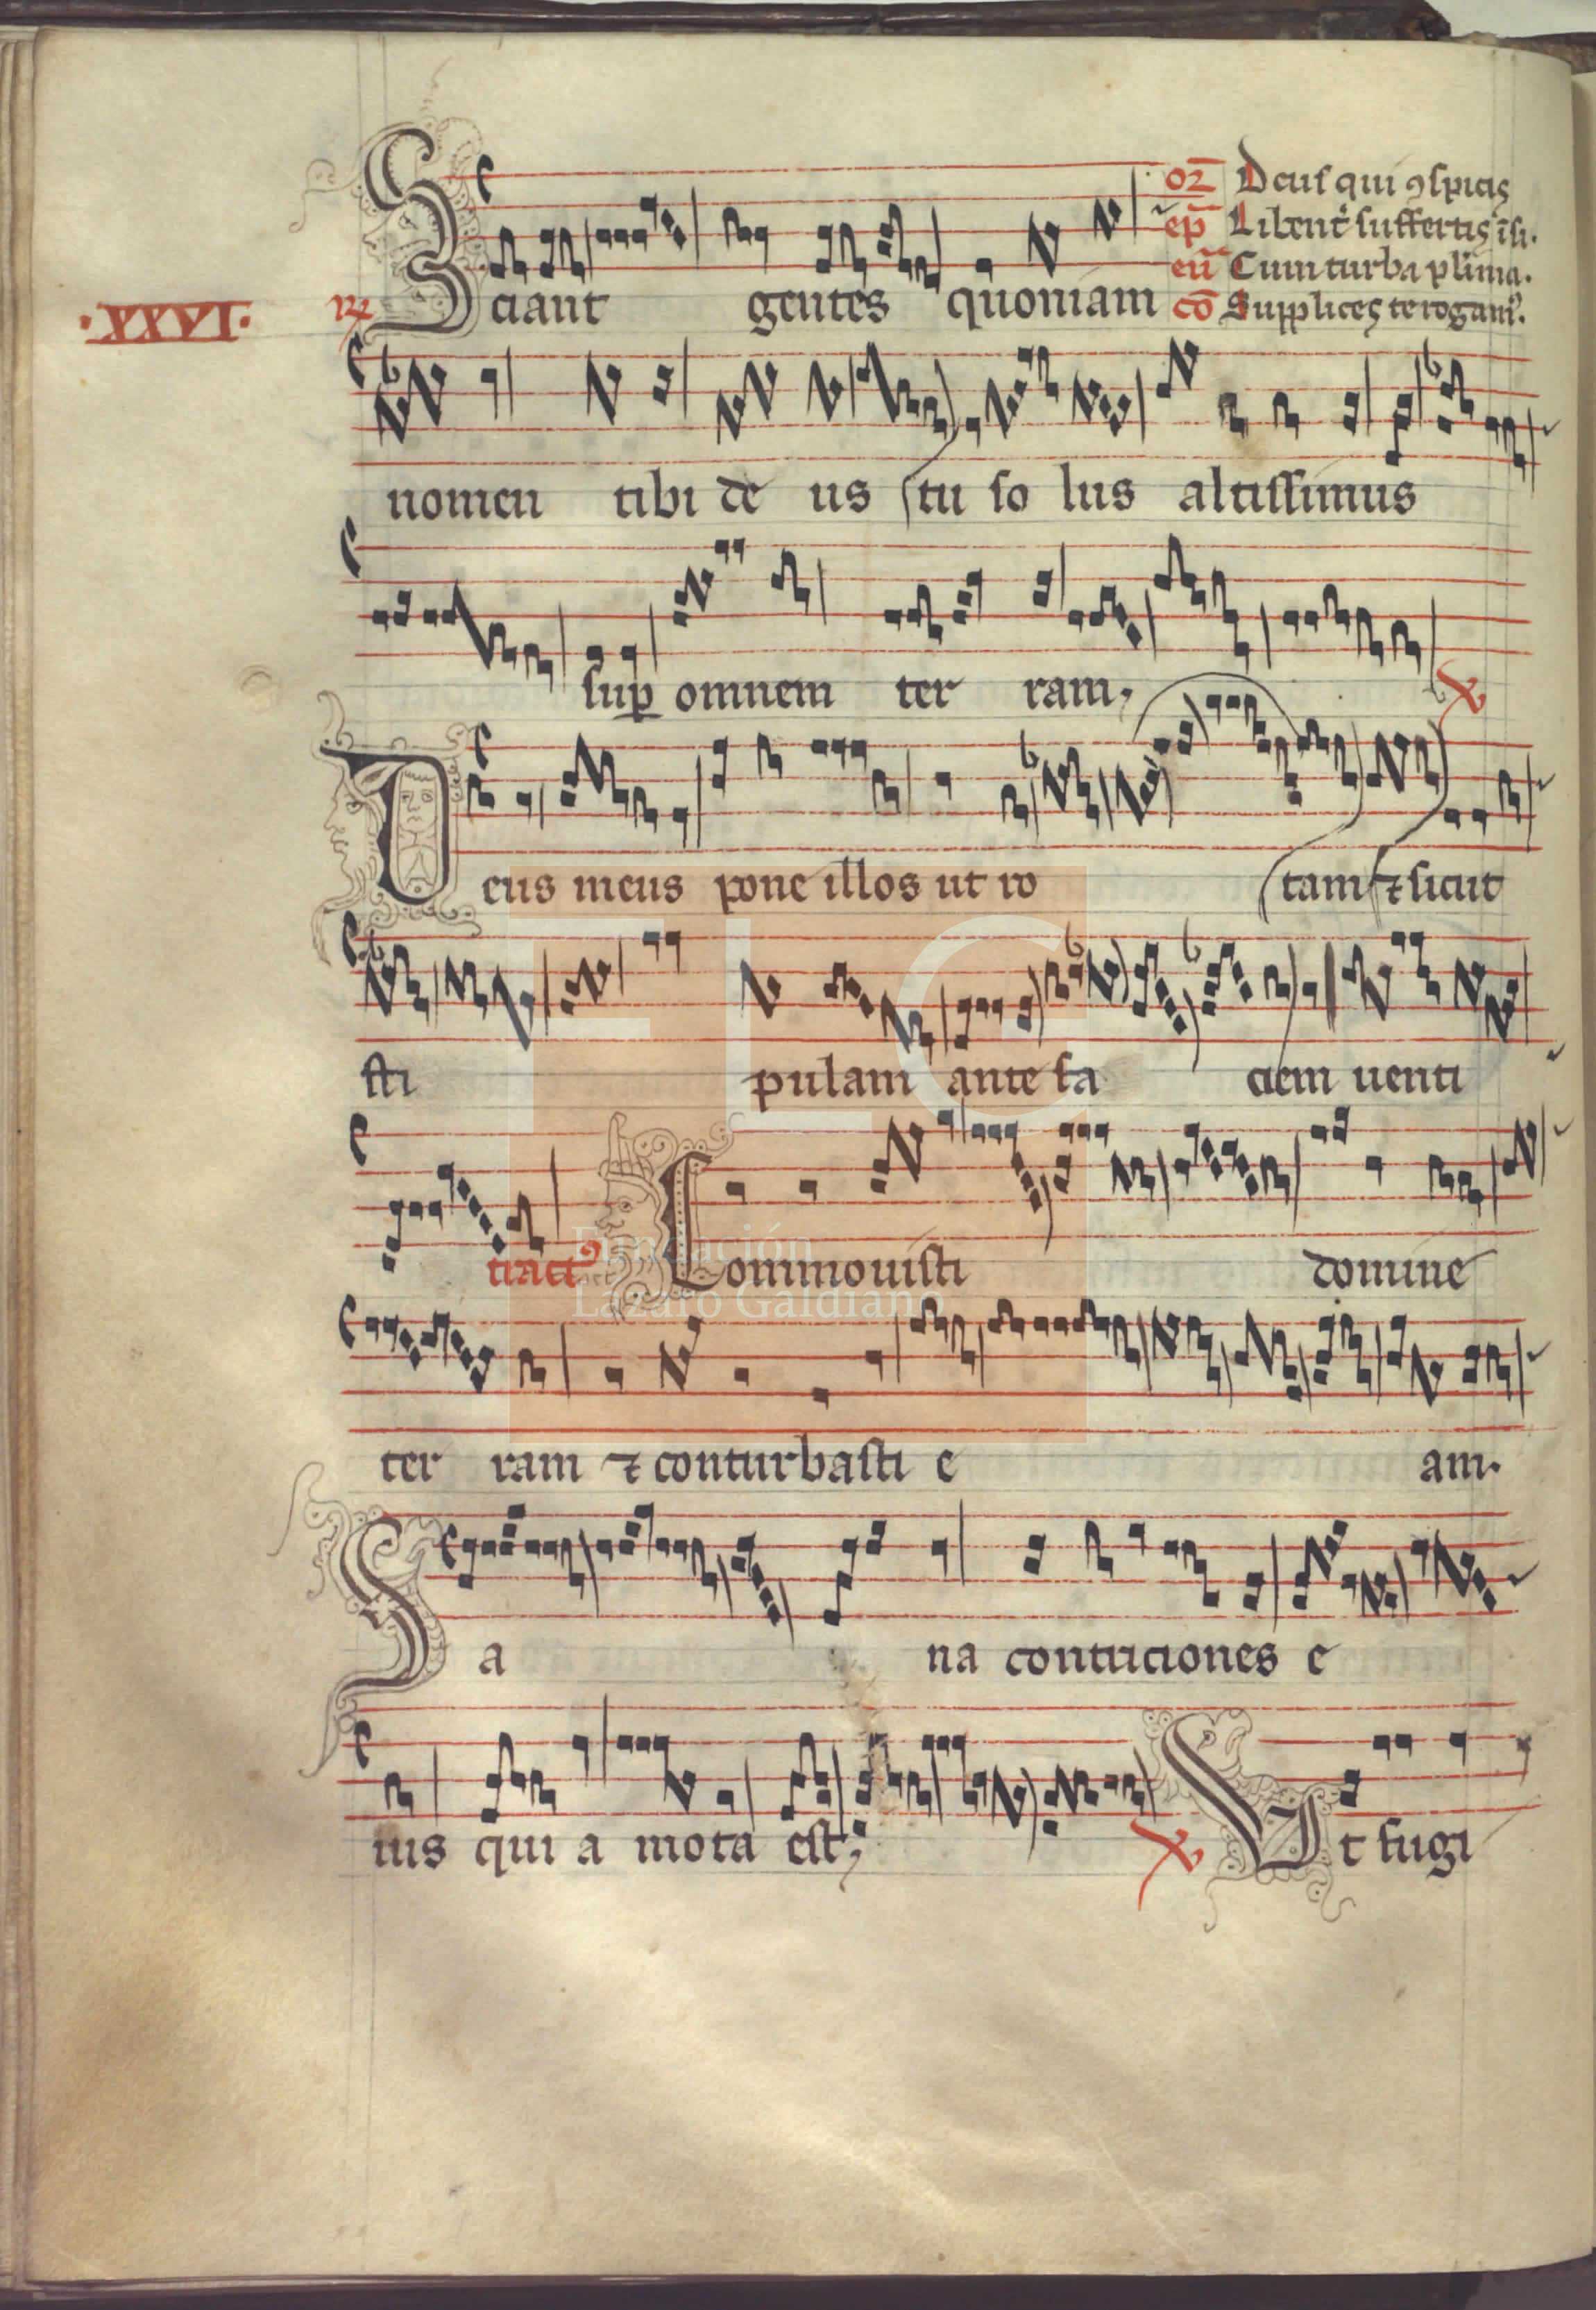 oꝛ̄ Deus qui ꝯspicis
ep̄ Libent̾ suffertis īsi.
eū Cum turba plima.
cō Supplices te rogamꝰ.
·XXVI·
R̷ Sciant gentes quoniam
nomen tibi de us tu so lus altissimus
sup̱ omnem ter ram.
V̷
Deus meus pone illos ut ro tam ⁊ sicut
sti pulam ante fa ciem uenti
tract Commouisti domine
ter ram ⁊ conturbasti e am.
Sa na contriciones e
ius qui a mota est;
V̷ Ut fugi
FLG
Fundación
Lázaro Galdiano